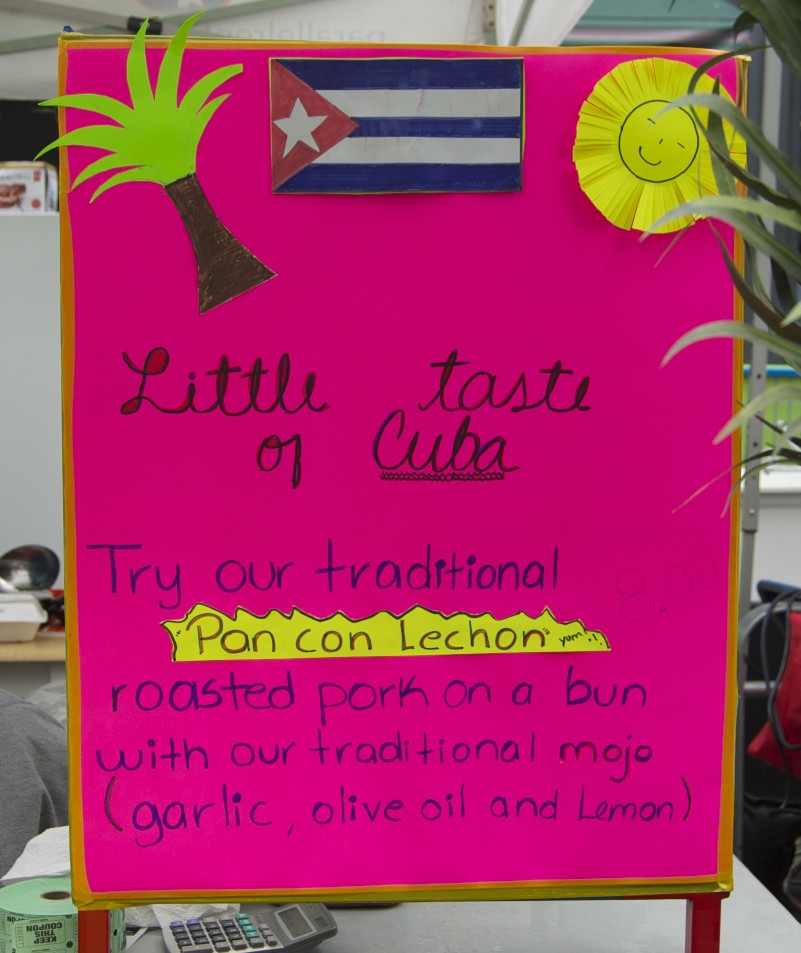 Little taste
of Cuba
Try our traditional
"Pan con Lechon" yum!!
roasted pork on a bun
with our traditional mojo
(garlic, olive oil and Lemon)
KEEP THIS
COUPON